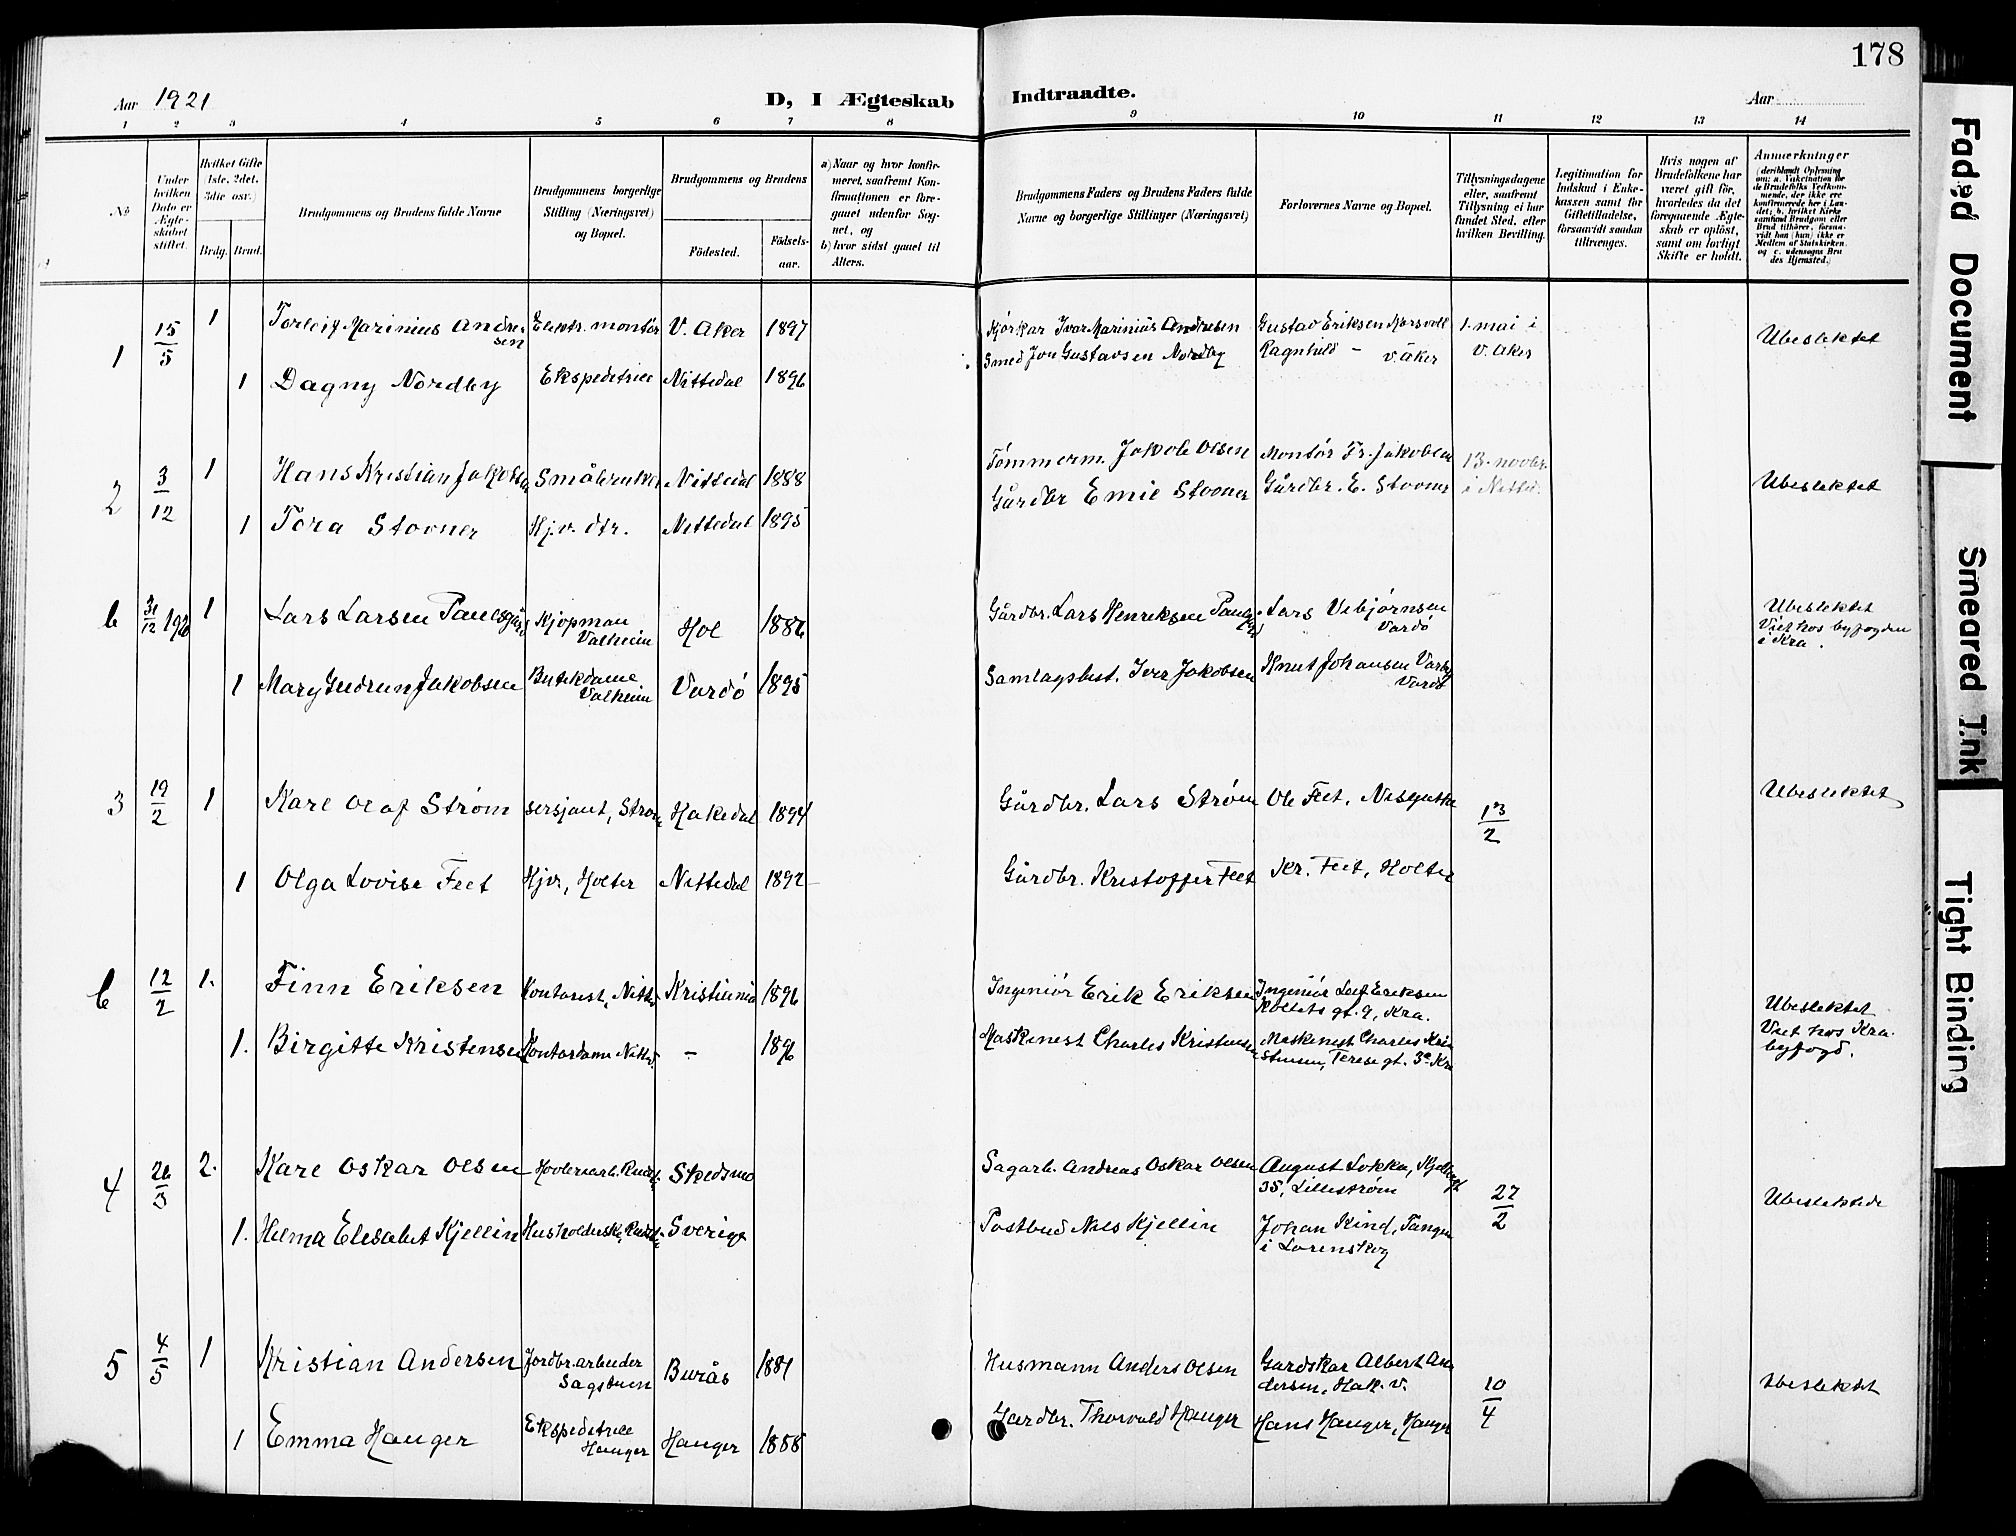 178
Aar 1921
D, I Ægteskab Indtraadte.
Aar
1 2 3 4 5 6 7 8 9 10 11 12 13 14
No
Under hvilken Dato er Ægteskabet stiftet.
Hvilket Gifte (1ste, 2det, 3die osv.)
Brdg. Brud.
Brudgommens og Brudens fulde Navne
Brudgommens borgerlige Stilling (Næringsvei) og Bopæl.
Brudgommens og Brudens
Fødested. Fødsels-aar.
a) Naar og hvor konfirmeret, saafremt Konfirmationen er foregaaet udenfor Sognet, og
b) hvor sidst gaaet til Alters.
Brudgommens Faders og Brudens Faders fulde Navne og borgerlige Stillinger (Næringsvei)
Forlovernes Navne og Bopæl.
Tillysningsdagene eller, saafremt Tillysning ei har fundet Sted, efter hvilken Bevilling.
Legitimation for Indskud i Enkekassen samt for Giftetilladelse, forsaavidt saadan tiltrænges.
Hvis nogen af Brudefolkene har været gift før, hvorledes da det foregaaende Ægteskab er opløst, samt om lovligt Skifte er holdt.
Anmærkninger (deriblandt Oplysning om: a. Vakcination for de Brudefolks Vedkommende, der ikke ere konfirmerede her i Landet; b. hvilket Kirkesamfund Brudgom eller Brud tilhører, forsaavidt han (hun) ikke er Medlem af Statskirken, og c. udensogns Brudes Hjemsted.)
1 15/5 1 Torleif Marinius Andresen Elektr. montør V. Aker 1897 Kjørkar Ivar Marinius Andresen Gustav Eriksen Korsvoll 1. mai i V. Aker Ubeslektet
1 Dagny Nordby Ekspeditrice Nittedal 1896 Smed Jon Gustavsen Nordby Ragnhild - V. Aker
2 3/12 1 Hans Kristian Jakobsen Småbruker Nittedal 1888 Tømmerm. Jakob Olsen Montør Fr. Jakobsen 13. novbr. i Nitted. Ubeslektet
1 Tora Stovner Hj.v. dtr. Nittedal 1895 Gårdbr Emil Stovner Gårdbr. E. Stovner
b 31/12 1920 1 Lars Larsen Paulsgård Kjøpman Valheim Hol 1886 Gårdbr. Lars Henriksen Lars Vebjørnsen Vardø Ubeslektet Viet hos byfogden i Kra.
1 Mary Gudrun Jakobsen Butikdame Valheim Vardø 1895 Samlagsbest. Iver Jakobsen Knut Johansen Vardø
3 19/2 1 Karl Olaf Strøm sersjant, Strøm Hakedal 1894 Gårdbr. Lars Strøm Ole Feet, 13/2 Ubeslektet
1 Olga Lovise Feet Hjv., Holter Nittedal 1892 Gårdbr. Kristoffer Feet Kr. Feet, Holter
b 12/2 1. Finn Eriksen Kontorist, Nitted. Kristiania 1896 Ingeniør Erik Eriksen Ingeniør Leif Eriksen gt. 9, Kra. Ubeslektet Viet hos Kra. byfogd.
1. Birgitte Kristensen Kontordame Nitted. - 1896 Maskinist Charles Kristensen Maskinist Charles Kristensen, Terese gt. 3a Kra
4 26/3 2. Karl Oskar Olsen Høvleriarb. Skedsmo Sagarb. Andreas Oskar Olsen August Løkka, 35, Lillestrøm 27/2 Ubeslektede
1. Helma Elisabet Kjellin Husholderske, Sverige Postbud Nils Kjellin Johan Kind, Tangen i Lørenskog
5 4/5 1 Kristian Andersen Jordbr.arbeider Sagstuen Burås 1881 Husmann Anders Olsen Gardskar Albert Andersen, Hak. v. 10/4 Ubeslektet
1 Emma Hauger Ekspeditrice Hauger Hauger 1888 Gardbr. Thorvald Hauger Hans Hauger, Hauger
Faded Document
Smeared Ink
Tight Binding